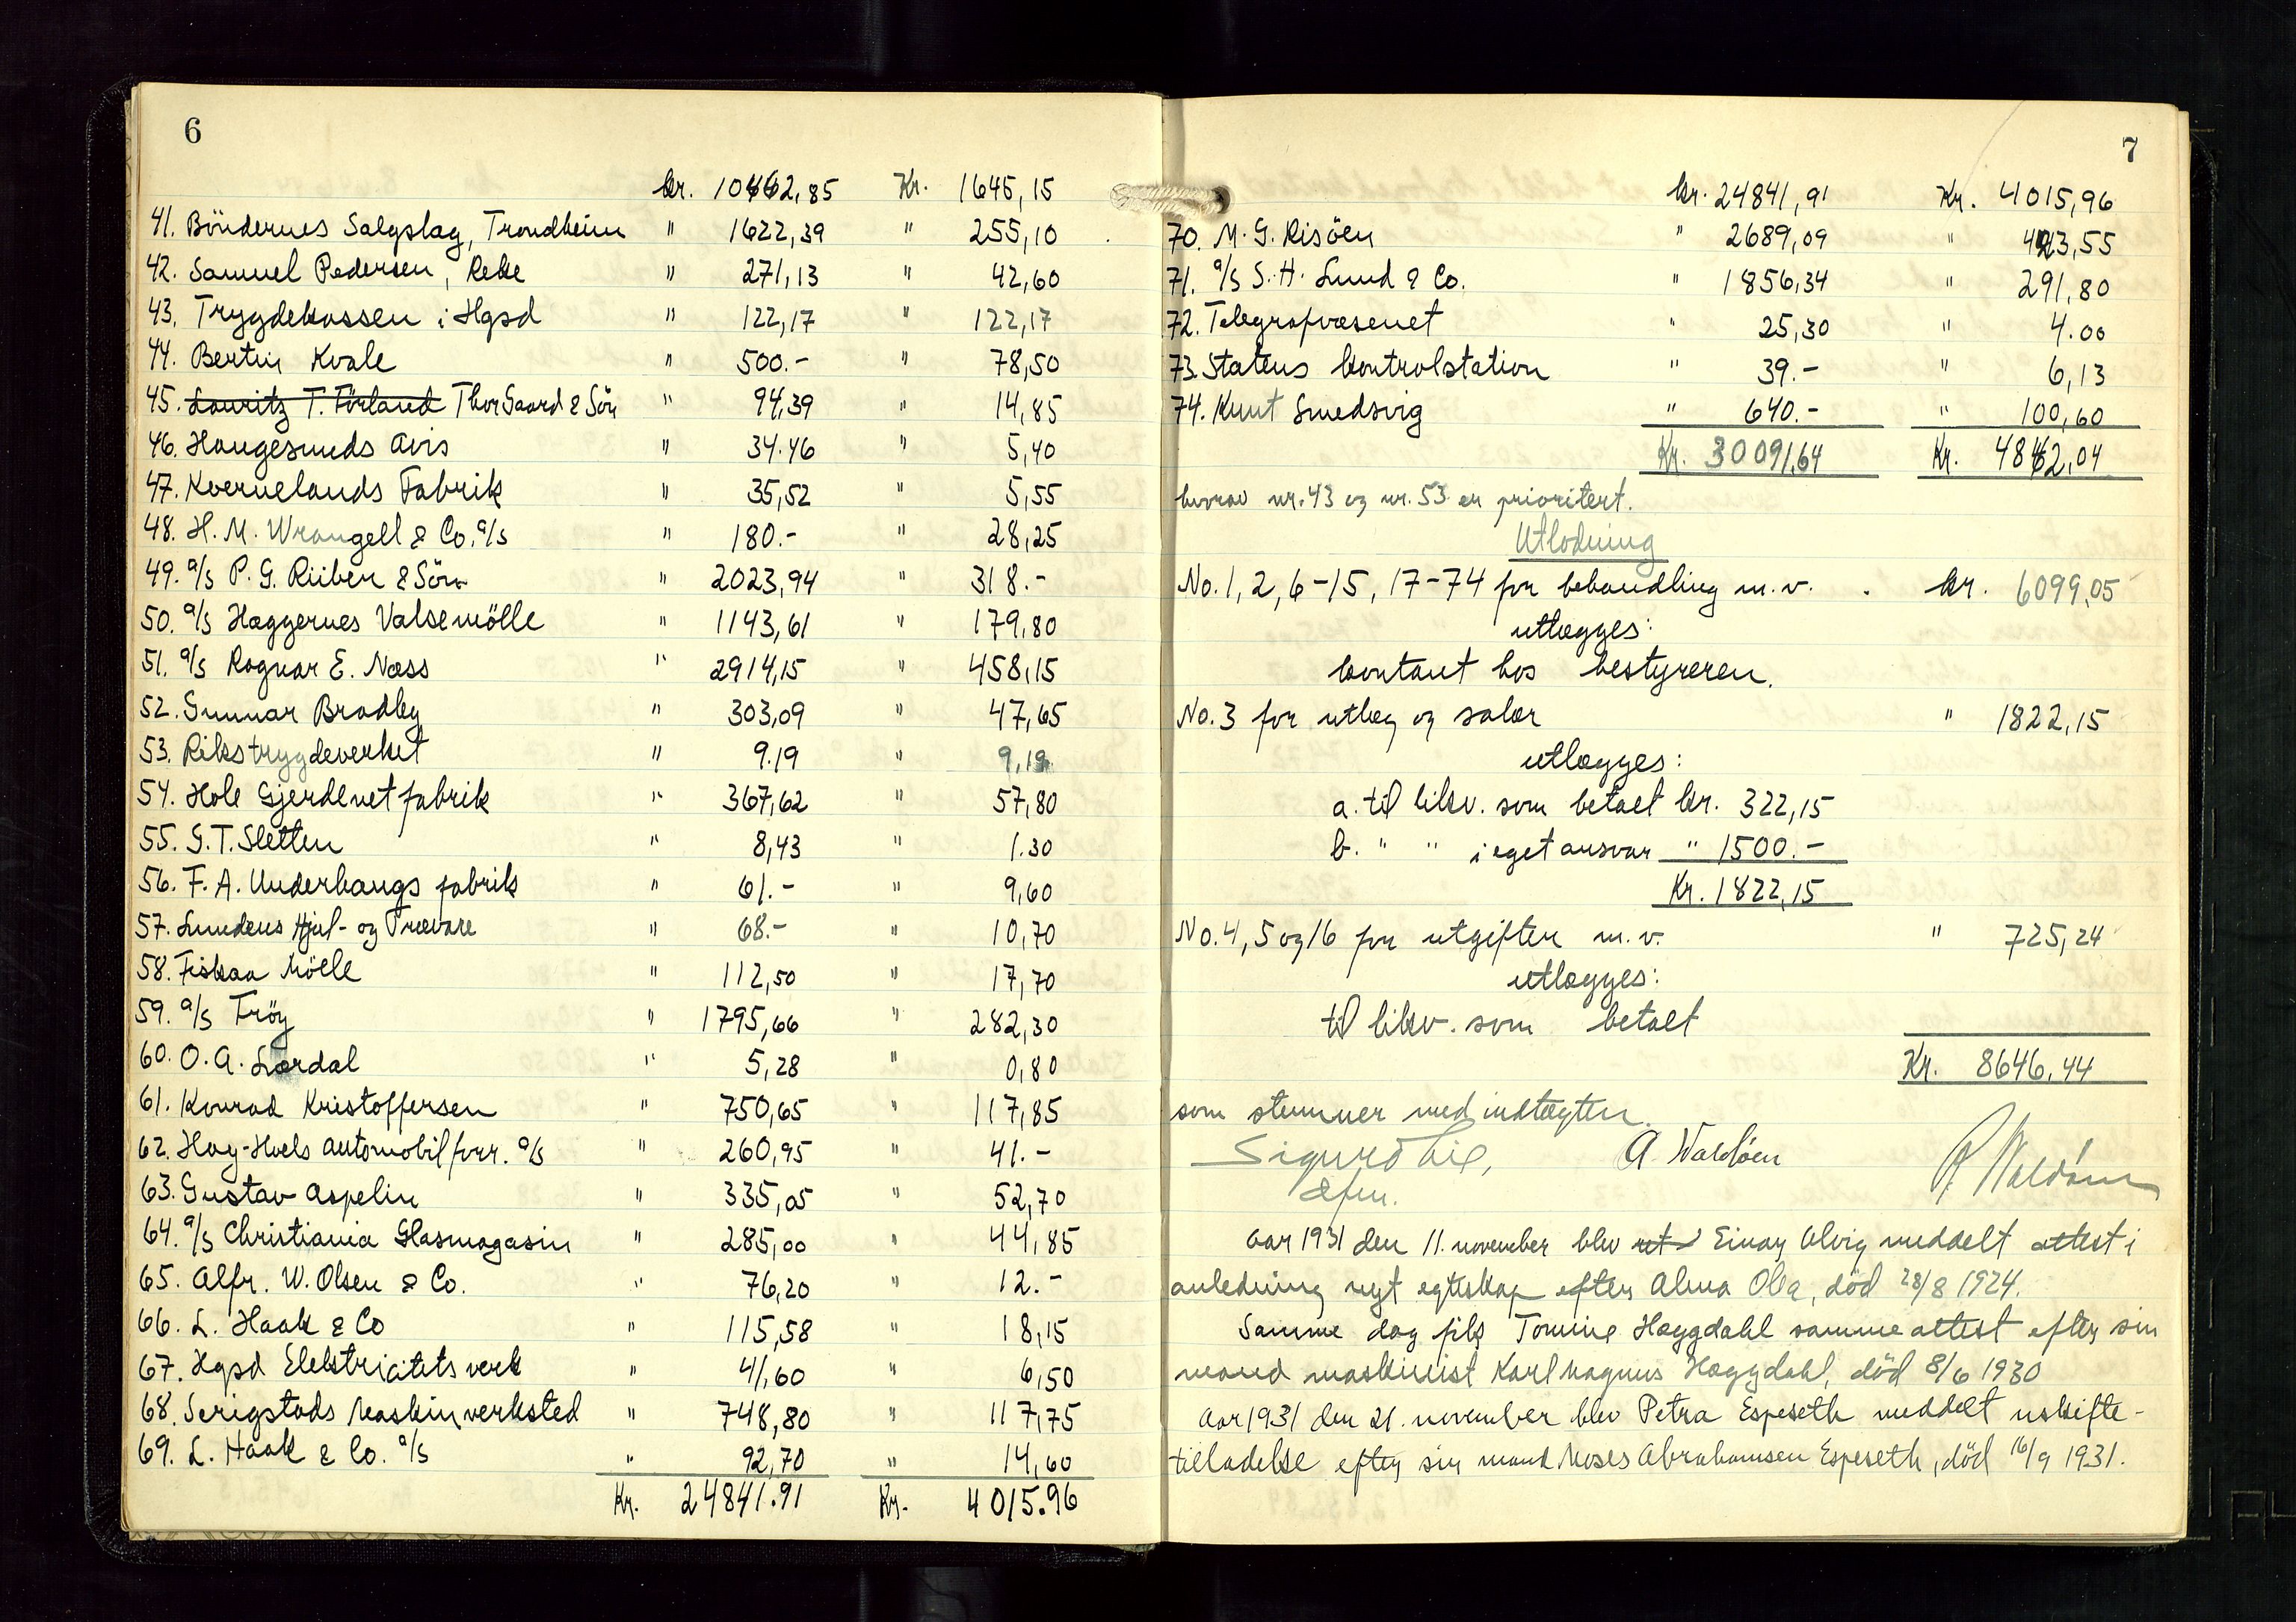 6
kr. 10462,85 Kr. 1645,15
41. Böndernes Salgslag, Trondheim " 1622,39 " 255,10
42. Samuel Pedersen, Reke " 271,13 " 42,60
43. Trygdekassen i Hgsd " 122,17 " 122,17
44. Bertin Kvale " 500.- " 78,50
45. Lauritz T. Förland Thor Saard & Sön " 94,39 " 14,85
46. Haugesunds Avis " 34.46 " 5,40
47. Kvernelands Fabrik " 35,52 " 5,55
48. H. M. Wrangell & Co. a/s " 180.- " 28,25
49. a/s P. G. Riiber & Sön " 2023,94 " 318.-
50. a/s Haggernes Valsemölle " 1143,61 " 179,80
51. a/s Ragnar E. Næss " 2914,15 " 458,15
52. Gunnar Bradley " 303,09 " 47,65
53. Rikstrygdeverket " 9.19 " 9,19
54. Hole Gjerdenetfabrik " 367,62 " 57,80
55. G. T. Sletten " 8,43 " 1.30
56. F. A. Underhaugs fabrik " 61.- " 9,60
57. Lundens Hjul- og Trævare " 68.- " 10,70
58. Fiskaa Mölle " 112,50 " 17,70
59. a/s Fröy " 1795,66 " 282,30
60. O. A. Lærdal " 5,28 " 0,80
61. Konrad Kristoffersen " 750,65 " 117,85
62. Hay-Hoels Automobilforr. a/s " 260,95 " 41.-
63. Gustav Aspelin " 335,05 " 52,70
64. a/s Christiania Glasmagasin " 285,00 " 44,85
65. Alfr. W. Olsen & Co. " 76,20 " 12.-
66. L. Haak & Co " 115,58 " 18,15
67. Hgsd Elektricitetsverk " 41,60 " 6,50
68. Serigstads Maskinverksted " 748,80 " 117,75
69. L. Haak & Co. a/s " 92,70 " 14,60
Kr. 24841.91 Kr. 4015.96
7
kr. 24841,91 Kr. 4015,96
70. M. G. Risöen " 2689,09 " 423,55
71. a/s S. H. Lund & Co. " 1856,34 " 291,80
72. Telegrafvæsenet " 25,30 " 4.00
73. Statens kontrolstation " 39.- " 6,13
74. Knut Smedsvig " 640.- " 100,60
Kr. 30091,64 Kr. 4842,04
hvorav nr. 43 og nr. 53 er prioritert.
Utlodning
No. 1, 2, 6-15, 17-74 for behandling m.v. . kr. 6099,05
utlægges:
kontant hos bestyreren.
No. 3 for utlæg og salær " 1822,15
utlægges:
a. til likv. som betalt kr. 322,15
b. " " i eget ansvar " 1500.-
Kr. 1822,15
No. 4, 5 og 16 for utgifter m.v. " 725,24
utlægges:
til likv. som betalt
Kr. 8646,44
som stemmer med indtægten.
Sigurd Lie, A. Waldöen R. Waldöen
efm.
Aar 1931 den 11. november blev ut Einar Alvig meddelt attest i
anledning nyt egteskap efter Alma Olga, död 28/8 1924.
Samme dag fik Tomine Haggdahl samme attest efter sin
mand maskinist Karl Magnus Haggdahl, död 8/6 1930
Aar 1931 den 21. november blev Petra Espeseth meddelt uskifte-
tilladelse efter sin mand Moses Abrahamsen Espeseth, död 16/9 1931.